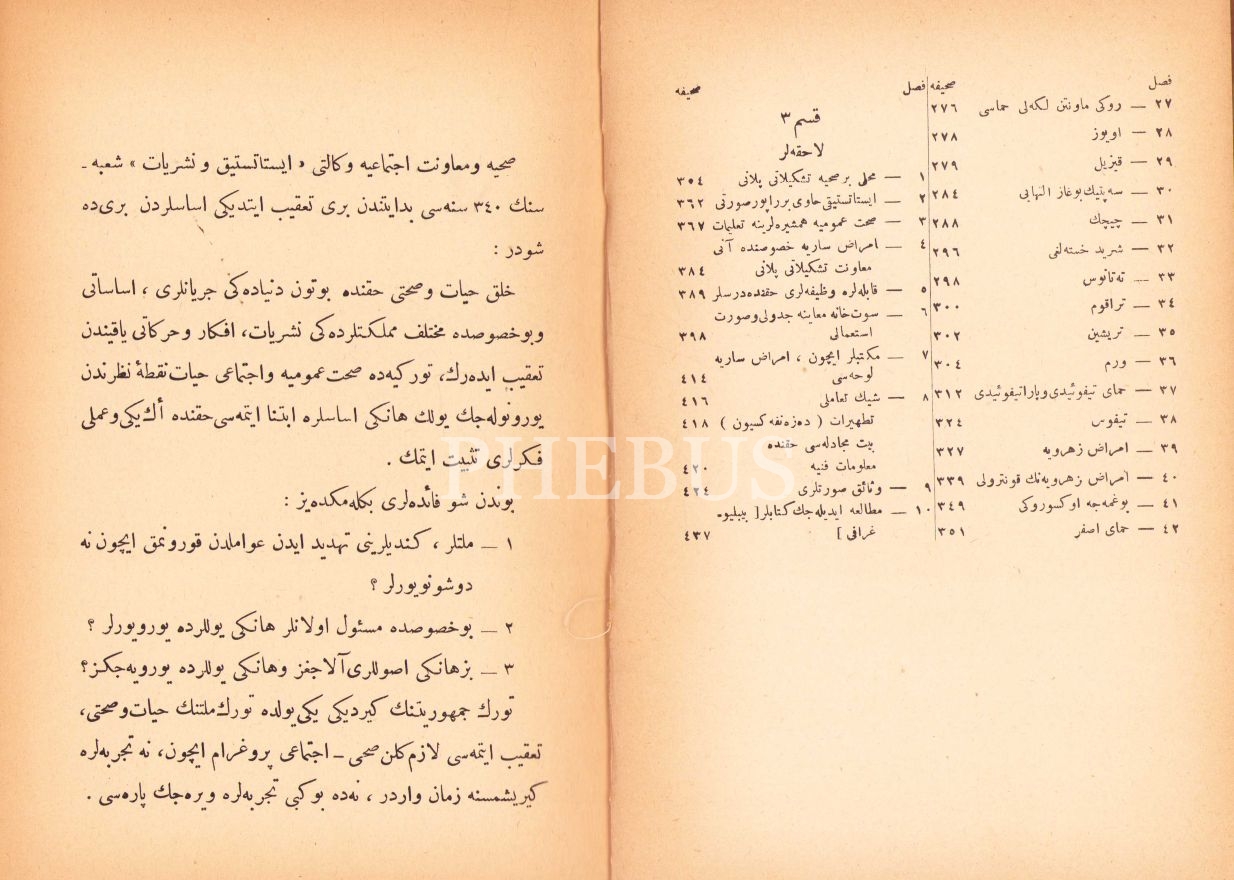 فصل صحیفه
٢٧ — روکی ماونتن لکه‌لی حماسی ٢٧٦
٢٨ — اویوز ٢٧٨
٢٩ — قیزیل ٢٧٩
٣٠ — سه‌پتیك بوغاز التهابی ٢٨٤
٣١ — چیچك ٢٨٨
٣٢ — شرید خسته‌لغی ٢٩٦
٣٣ — ته‌تانوس ٢٩٨
٣٤ — تراقوم ٣٠٠
٣٥ — تریشین ٣٠٢
٣٦ — ورم ٣٠٤
٣٧ — حمای تیفوئیدی و پاراتیفوئیدی ٣١٢
٣٨ — تیفوس ٣٢٤
٣٩ — امراض زهرویه ٣٢٧
٤٠ — امراض زهرویه‌نك قونترولی ٣٣٩
٤١ — بوغمه‌جه اوکسوروکی ٣٤٩
٤٢ — حمای اصفر ٣٥١
فصل صحیفه
قسم ٣
لاحقه‌لر
١ — محلی بر صحیه تشکیلاتی پلانی ٣٥٤
٢ — ایستاتستیقی حاوی بر راپور صورتی ٣٦٢
٣ — صحت عمومیه همشیره‌لرینه تعلیمات ٣٦٧
٤ — امراض ساریه خصوصنده آنی
معاونت تشکیلاتی پلانی ٣٨٤
٥ — قابله‌لره وظیفه‌لری حقنده درسلر ٣٨٩
٦ — سوت‌خانه معاینه جدولی و صورت
استعمالی ٣٩٨
٧ — مکتبلر ایچون ، امراض ساریه
لوحه‌سی ٤١٤
٨ — شیك تعاملی ٤١٦
تطهیرات ( ده‌زه‌نفه‌کسیون ) ٤١٨
بیت مجادله‌سی حقنده
معلومات فنیه ٤٢٠
٩ — وثائق صورتلری ٤٢٤
١٠ — مطالعه ایدیله‌جك کتابلر [ بیبلیو-
غرافی ] ٤٣٧
صحیه ومعاونت اجتماعیه وکالتی « ایستاتستیق و نشریات » شعبه -
سنك ٣٤٠ سنه‌سی بدایتندن بری تعقیب ایتدیکی اساسلردن بری ده
شودر :
خلق حیات وصحتی حقنده بوتون دنیاده‌کی جریانلری ، اساساتی
وبوخصوصده مختلف مملکتلرده‌کی نشریات، افکار وحرکاتی یاقیندن
تعقیب ایده‌رك، تورکیه‌ده صحت عمومیه واجتماعی حیات نقطۀ نظرندن
یورونوله‌جك یوللك هانکی اساسلره ابتنا ایتمه‌سی حقنده أك یکی وعملی
فکرلری تثبیت ایتمك .
بوندن شو فائده‌لری بکله‌مکده‌یز :
١ — ملتلر ، کندیلرینی تهدید ایدن عواملدن قورونمق ایچون نه
دوشونویورلر ؟
٢ — بوخصوصده مسئول اولانلر هانکی یوللرده یورویورلر ؟
٣ — بز هانکی اصوللری آلاجغز وهانکی یوللرده یورویه‌جکز؟
تورك جمهوریتنك کیردیکی یکی یولده تورك ملتنك حیات وصحتی،
تعقیب ایتمه‌سی لازم کلن صحی - اجتماعی پروغرام ایچون، نه تجربه‌لره
کیریشمسنه زمان واردر ، نه‌ده بوکبی تجربه‌لره ویره‌جك پاره‌سی .
PHEBUS